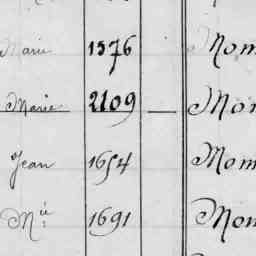 Marie 1576 Mom
Marie 2109 — Mom
Jean 1654 Mom
Mie 1691 Mom